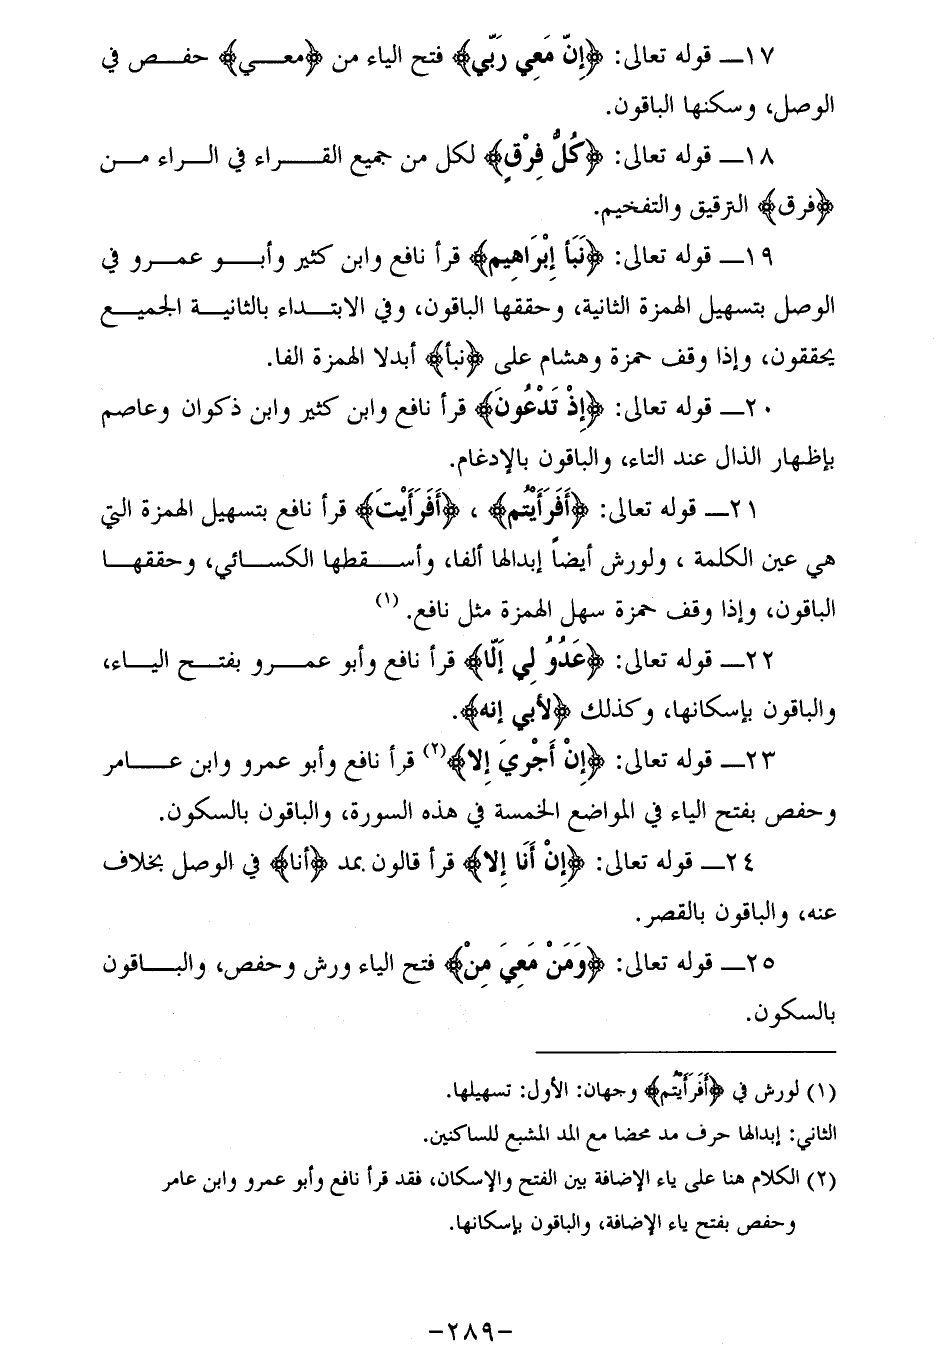 ١٧ــ قوله تعالى: ﴿إِنَّ مَعِي رَبِّي﴾ فتح الياء من ﴿معــي﴾ حفــص في
الوصل، وسكنها الباقون.
١٨ــ قوله تعالى: ﴿كُلُّ فِرْقٍ﴾ لكل من جميع القــراء في الــراء مــن
﴿فرق﴾ الترقيق والتفخيم.
١٩ــ قوله تعالى: ﴿نَبَأَ إِبْرَاهِيمَ﴾ قرأ نافع وابن كثير وأبــو عمــرو في
الوصل بتسهيل الهمزة الثانية، وحققها الباقون، وفي الابتــداء بالثانيــة الجميــع
يحققون، وإذا وقف حمزة وهشام على ﴿نبأ﴾ أبدلا الهمزة الفا.
٢٠ــ قوله تعالى: ﴿إِذْ تَدْعُونَ﴾ قرأ نافع وابن كثير وابن ذكوان وعاصم
بإظهار الذال عند التاء، والباقون بالإدغام.
٢١ــ قوله تعالى: ﴿أَفَرَأَيْتُم﴾ ، ﴿أَفَرَأَيْتَ﴾ قرأ نافع بتسهيل الهمزة التي
هي عين الكلمة ، ولورش أيضاً إبدالها ألفا، وأســقطها الكســائي، وحققهــا
الباقون، وإذا وقف حمزة سهل الهمزة مثل نافع. (١)
٢٢ــ قوله تعالى: ﴿عَدُوٌّ لِي إلَّا﴾ قرأ نافع وأبو عمــرو بفتــح اليــاء،
والباقون بإسكانها، وكذلك ﴿لأبي إنه﴾.
٢٣ــ قوله تعالى: ﴿إِنْ أَجْرِيَ إِلا﴾(٢) قرأ نافع وأبو عمرو وابن عــامر
وحفص بفتح الياء في المواضع الخمسة في هذه السورة، والباقون بالسكون.
٢٤ــ قوله تعالى: ﴿إِنْ أَنَا إِلا﴾ قرأ قالون بمد ﴿أنا﴾ في الوصل بخلاف
عنه، والباقون بالقصر.
٢٥ــ قوله تعالى: ﴿وَمَنْ مَعِيَ مِنْ﴾ فتح الياء ورش وحفص، والبــاقون
بالسكون.
(١) لورش في ﴿أَفَرَأَيْتُم﴾ وجهان: الأول: تسهيلها.
الثاني: إبدالها حرف مد محضا مع المد المشبع للساكنين.
(٢) الكلام هنا على ياء الإضافة بين الفتح والإسكان، فقد قرأ نافع وأبو عمرو وابن عامر
وحفص بفتح ياء الإضافة، والباقون بإسكانها.
-٢٨٩-